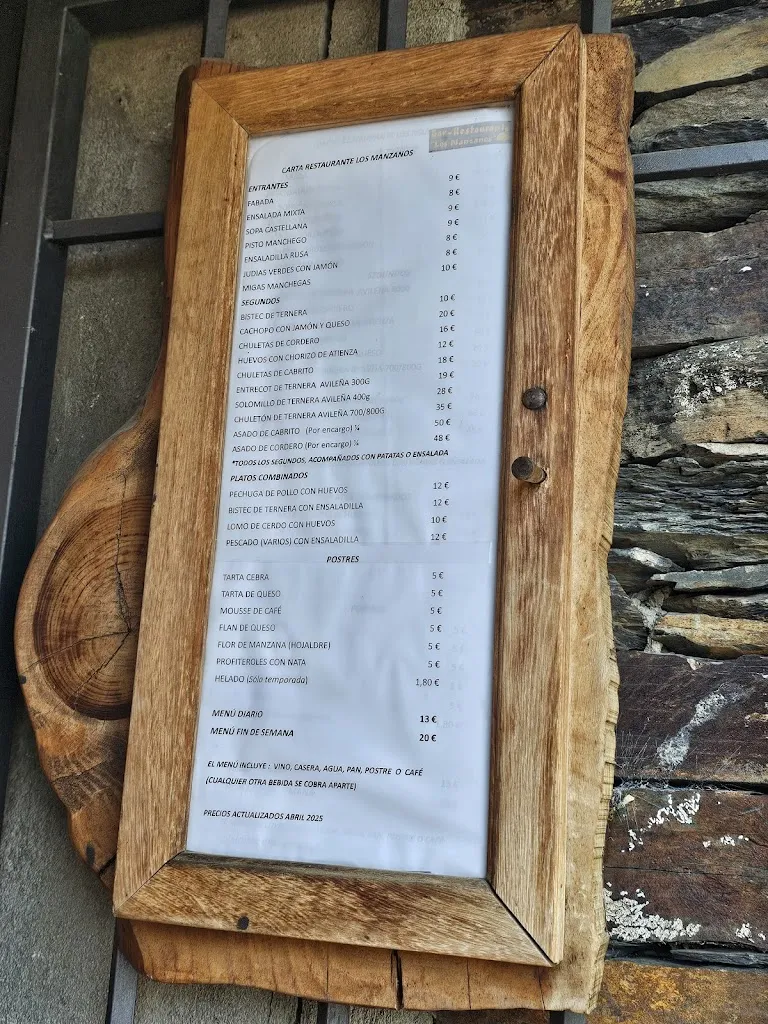 Bar-Restaurante
Los Manzanos
CARTA RESTAURANTE LOS MANZANOS
ENTRANTES
FABADA 9 €
ENSALADA MIXTA 8 €
SOPA CASTELLANA 9 €
PISTO MANCHEGO 9 €
ENSALADILLA RUSA 8 €
JUDIAS VERDES CON JAMÓN 8 €
MIGAS MANCHEGAS 10 €
SEGUNDOS
BISTEC DE TERNERA 10 €
CACHOPO CON JAMÓN Y QUESO 20 €
CHULETAS DE CORDERO 16 €
HUEVOS CON CHORIZO DE ATIENZA 12 €
CHULETAS DE CABRITO 18 €
ENTRECOT DE TERNERA, AVILEÑA 300G 19 €
SOLOMILLO DE TERNERA AVILEÑA 400g 28 €
CHULETÓN DE TERNERA AVILEÑA 700/800G 35 €
ASADO DE CABRITO (Por encargo) ¼ 50 €
ASADO DE CORDERO (Por encargo) ¼ 48 €
*TODOS LOS SEGUNDOS, ACOMPAÑADOS CON PATATAS O ENSALADA
PLATOS COMBINADOS
PECHUGA DE POLLO CON HUEVOS 12 €
BISTEC DE TERNERA CON ENSALADILLA 12 €
LOMO DE CERDO CON HUEVOS 10 €
PESCADO (VARIOS) CON ENSALADILLA 12 €
POSTRES
TARTA CEBRA 5 €
TARTA DE QUESO 5 €
MOUSSE DE CAFÉ 5 €
FLAN DE QUESO 5 €
FLOR DE MANZANA (HOJALDRE) 5 €
PROFITEROLES CON NATA 5 €
HELADO (Solo temporada) 1,80 €
MENÚ DIARIO 13 €
MENÚ FIN DE SEMANA 20 €
EL MENÚ INCLUYE : VINO, CASERA, AGUA, PAN, POSTRE O CAFÉ
(CUALQUIER OTRA BEBIDA SE COBRA APARTE)
PRECIOS ACTUALIZADOS ABRIL 2025